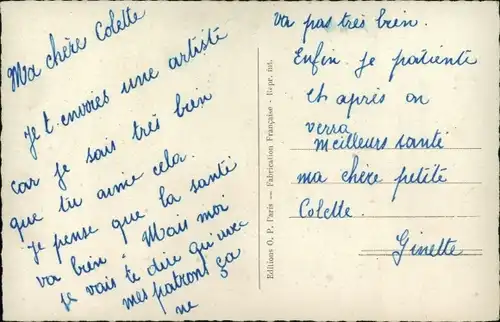 Ma chère Colette
Je t'envoies une artiste
car je sais très bien
que tu aime cela.
Je pense que la santé
va bien. Mais moi
Je vais te dire qu'avec
mes patrons ça
ne
va pas très bien.
Enfin je patiente
Et après on
verra
Meilleurs santé
ma chère petite
Colette.
Ginette
Editions O. P. Paris — Fabrication Française — Repr. int.